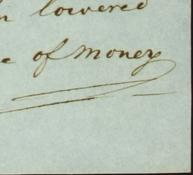 lowered
of Money